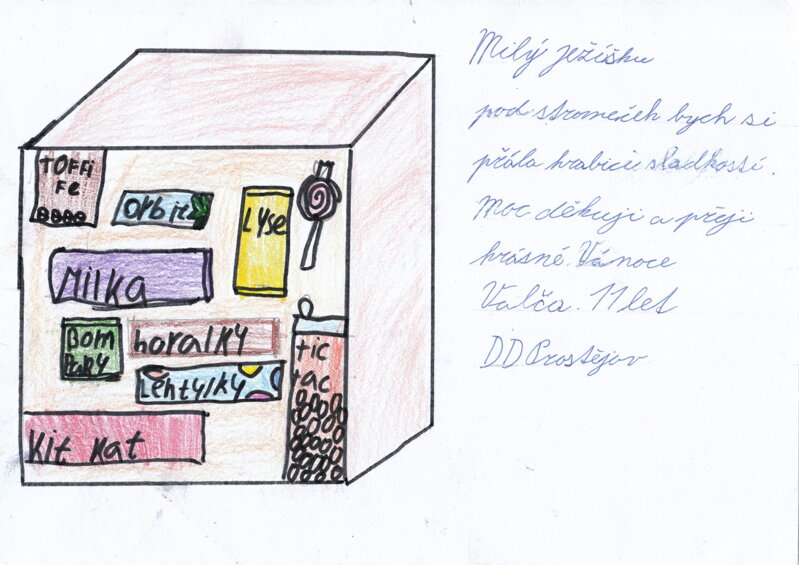 TOFFI
FE
Orbit
Lyse
Milka
Bom
Pary
horalky
Lentylky
tic
tac
Kit Kat
Milý ježíšku
pod stromeček bych si
přála krabici sladkostí.
Moc děkuji a přeji
krásné Vánoce
Valča. 11 let
DD Prostějov